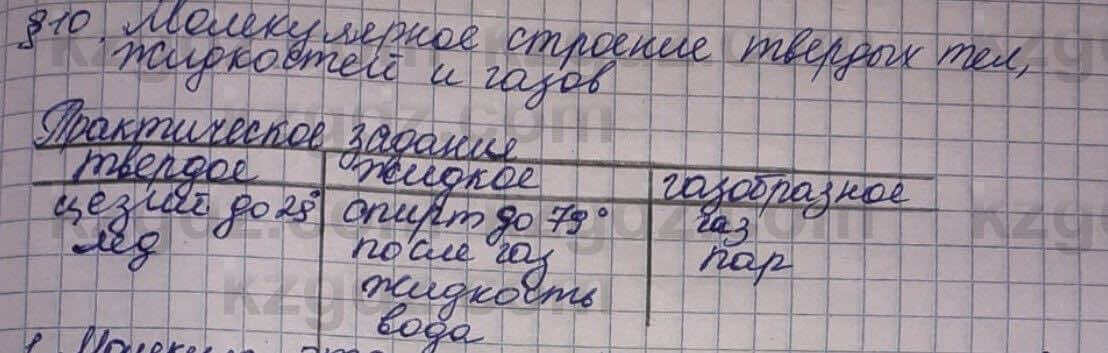 §10. Молекулярное строение твердых тел,
жидкостей и газов
Практическое задание
твердое жидкое газообразное
цезий до 28° спирт до 79° газ
лед после газ пар
жидкость
вода